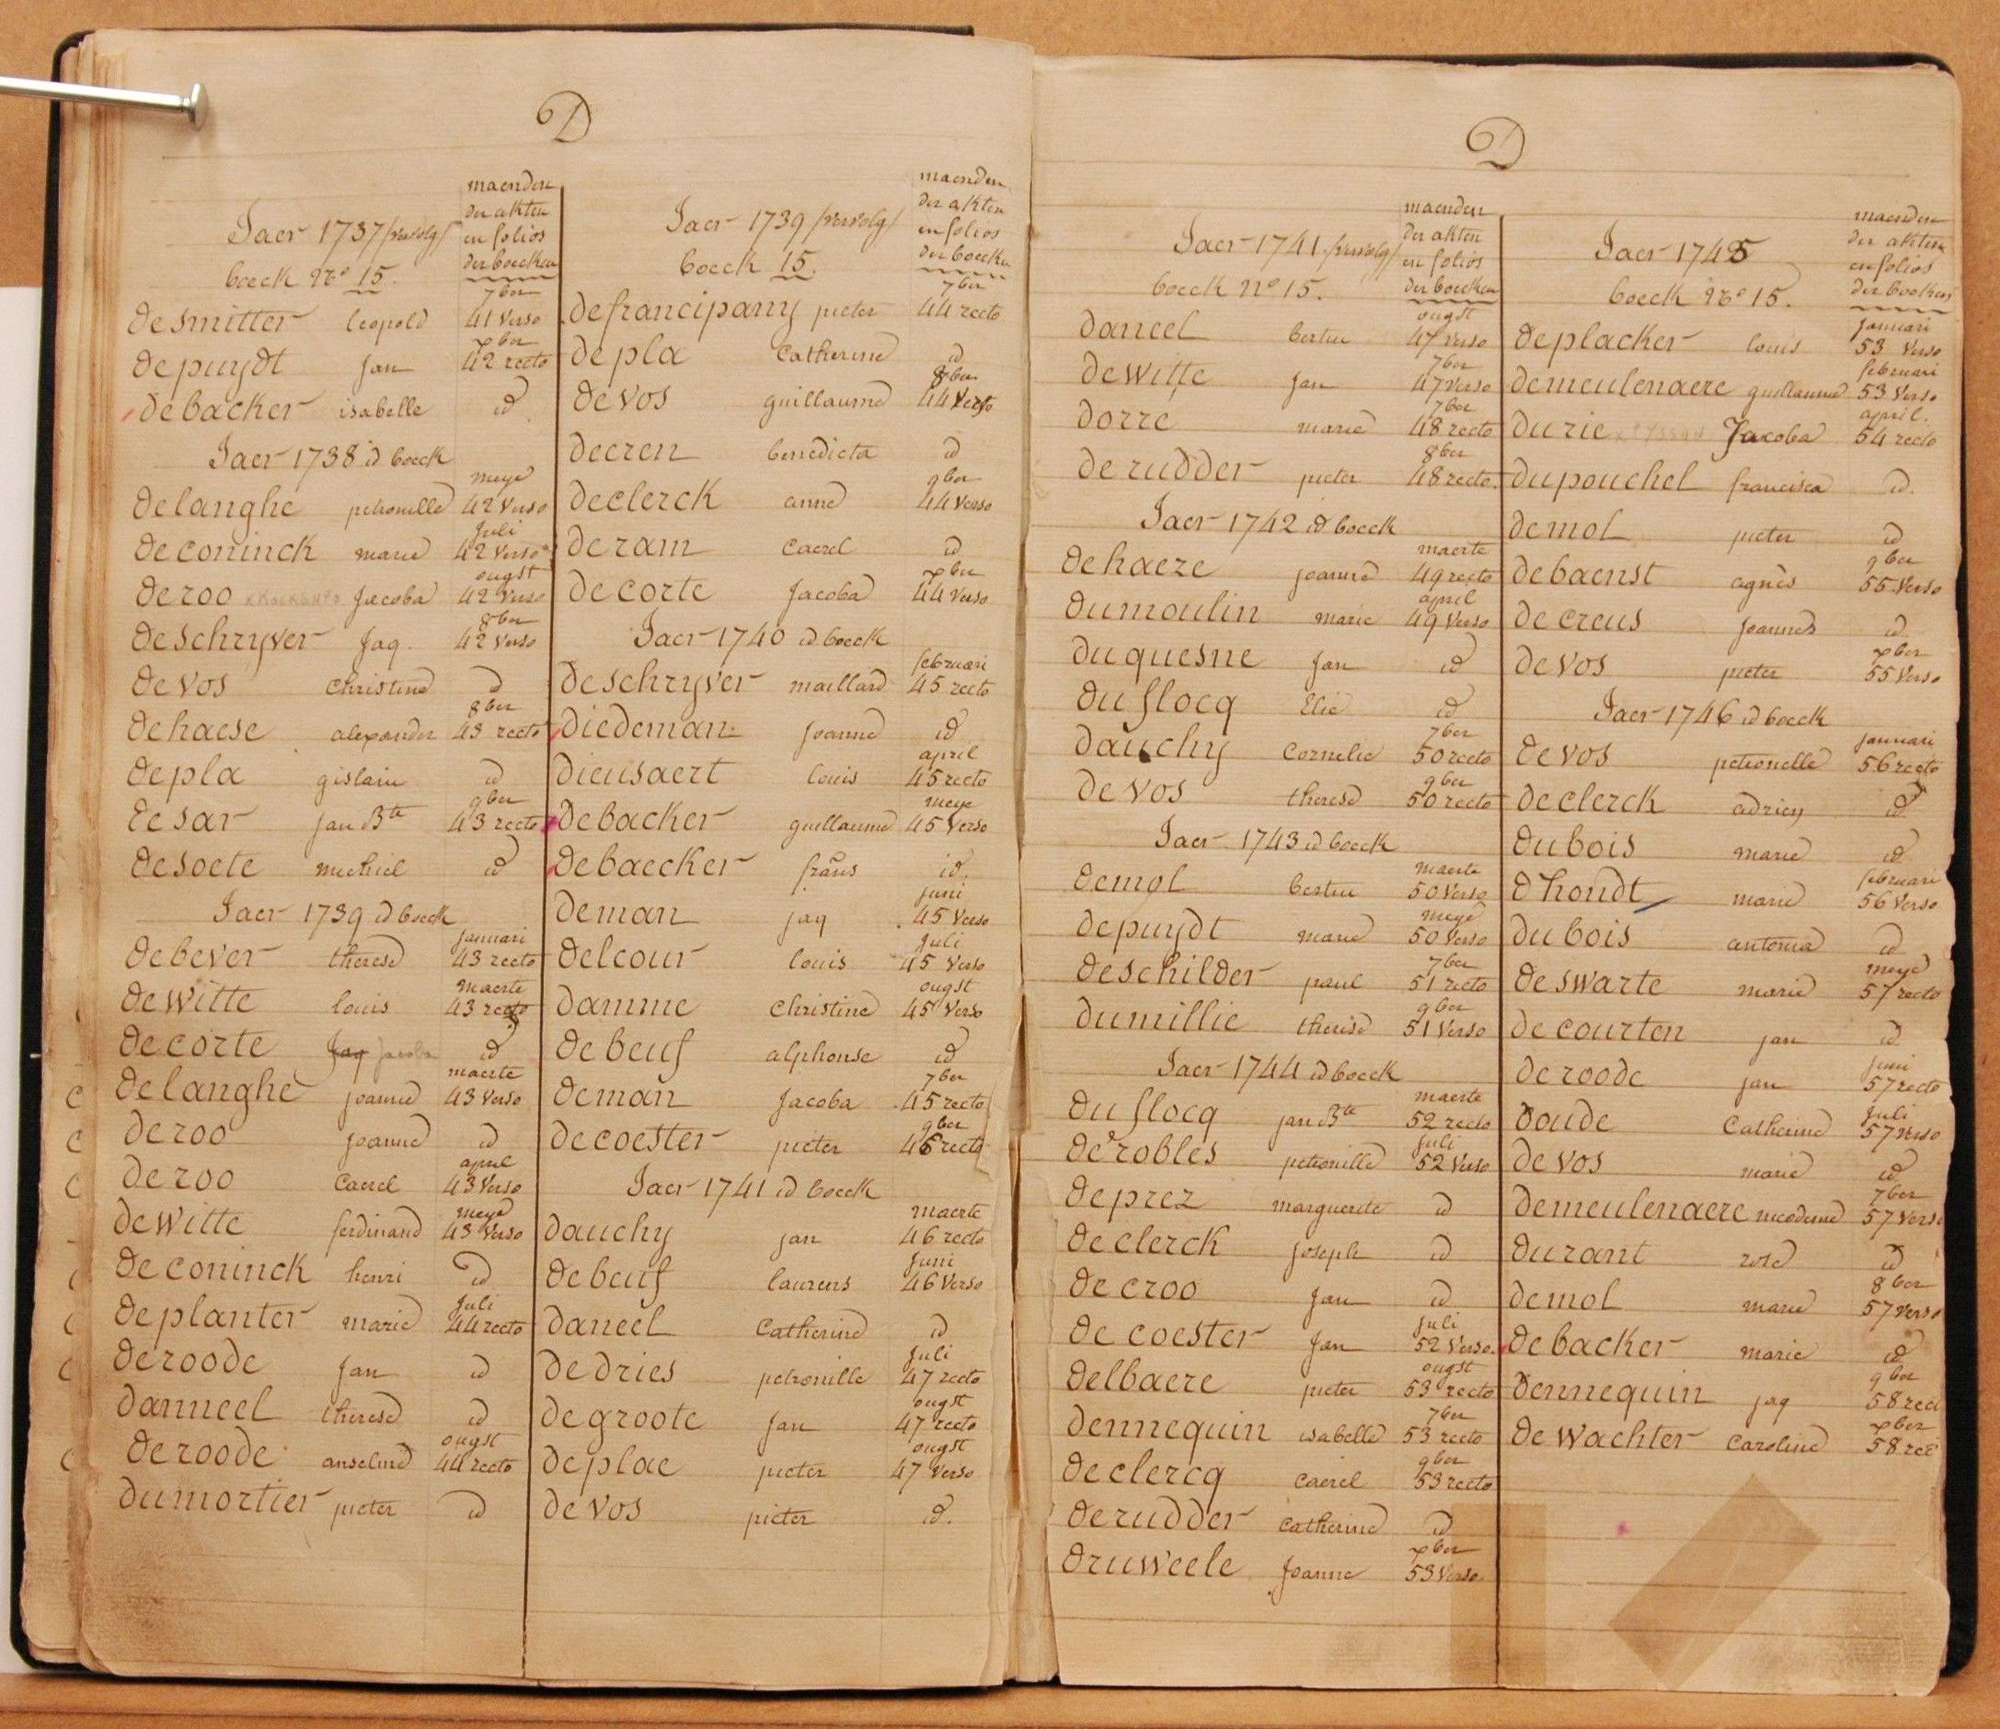 D
maenden
der akten
Jaer 1737 /vervolg/ en folios
boeck No 15. der boecken
7ber
desmitter leopold 41 verso
xber
depuydt jan 42 recto
debacker isabelle id
Jaer 1738 id boeck
meye
delanghe petronille 42 verso
juli
deconinck marie 42 verso
ougst
deroo Jacoba 42 verso
8ber
deschryver Jaq. 42 verso
devos christine id
8ber
dehaese alexander 43 recto
depla gislain id
9ber
Desar jan Bte 43 recto
desoete michiel id
Jaer 1739 id boeck
januari
debever therese 43 recto
maerte
dewitte louis 43 recto
decorte Jaq Jacoba id
maerte
delanghe joanne 43 verso
deroo joanne id
april
deroo carel 43 verso
meye
dewitte ferdinand 43 verso
deconinck henri id
juli
deplanter marie 44 recto
deroode jan id
danneel therese id
ougst
deroode anselme 44 recto
dumortier pieter id
maenden
der akten
Jaer 1739 /vervolg/ en folios
boeck 15. der boecken
7ber
defrancipany pieter 44 recto
depla Catherine id
8ber
devos guillaume 44 verso
decren benedicta id
9ber
declerck anne 44 verso
deram Caerel id
xber
decorte Jacoba 44 verso
Jaer 1740 id boeck
februari
deschryver maillard 45 recto
diedeman joanne id
april
dieusaert louis 45 recto
meye
debacker guillaume 45 verso
debaecker frans id.
juni
deman jaq 45 verso
juli
delcour louis 45 verso
ougst
damme Christine 45 verso
debeuf alphonse id
7ber
deman Jacoba 45 recto
9ber
decoester pieter 46 recto
Jaer 1741 id boeck
maerte
dauchy jan 46 recto
juni
debeuf laurens 46 verso
daneel Catherine id
juli
dedries petronille 47 recto
ougst
degroote jan 47 recto
ougst
deplae pieter 47 verso
devos pieter id.
D
maenden
Jaer 1741 /vervolg/ der akten
en folios
boeck No 15. der boecken
ougst
daneel bertin 47 verso
7ber
dewitte jan 47 verso
7ber
dorre marie 48 recto
8ber
derudder pieter 48 recto
Jaer 1742 id boeck
maerte
dehaeze joanne 49 recto
april
dumoulin marie 49 verso
duquesne jan id
duflocq Elie id
7ber
dauchy Cornelie 50 recto
9ber
devos therese 50 recto
Jaer 1743 id boeck
maerte
demol bertin 50 verso
meye
depuydt marie 50 verso
7ber
deschilder paul 51 recto
9ber
dumillie therese 51 verso
Jaer 1744 id boeck
maerte
duflocq jan Bte 52 recto
juli
derobles petronille 52 verso
deprez marguerite id
declerck joseph id
decroo jan id
juli
decoester jan 52 verso
ougst
delbaere pieter 53 recto
7ber
dennequin isabelle 53 recto
9ber
declercq Caerel 53 recto
derudder Catherine id
xber
druweele joanne 53 verso
maenden
Jaer 1745 der akten
en folios
boeck No 15. der boeken
januari
deplacker louis 53 verso
februari
demeulenaere guillaume 53 verso
april.
durie Jacoba 54 recto
dupouchel francisca id.
demol pieter id
9ber
debaenst agnès 55 verso
decreus joannes id
xber
devos pieter 55 verso
Jaer 1746 id boeck
januari
devos petronelle 56 recto
declerck adrien id
dubois marie id
februari
dhondt marie 56 verso
dubois antonia id
meye
deswarte marie 57 recto
decourten jan id
juni
deroode jan 57 recto
juli
doude Catherine 57 verso
devos marie id
7ber
demeulenaere nicodeme 57 verso
durant rose id
8ber
demol marie 57 verso
debacker marie id
9ber
dennequin jaq 58 rec
xber
dewachter Caroline 58 rec